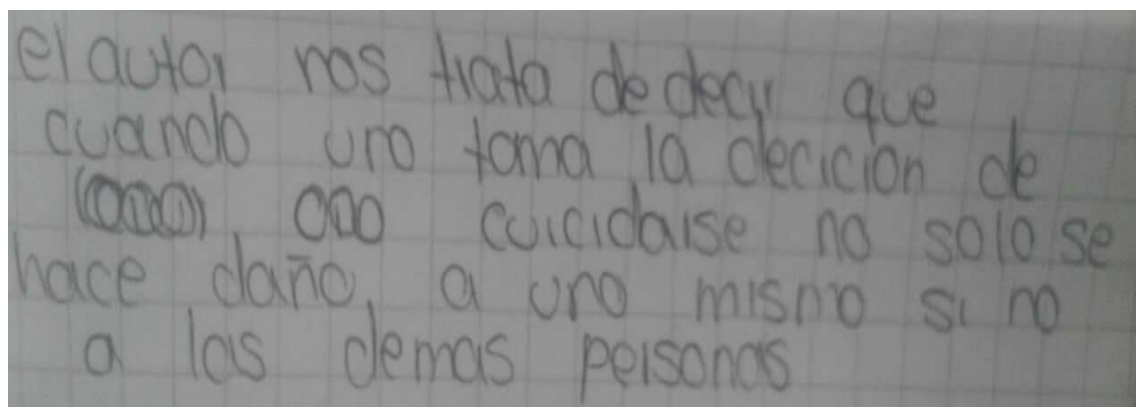 el autor nos trata de decir que
cuando uno toma la decicion de
cuicidarse no solo se
hace daño, a uno mismo si no
a las demas personas